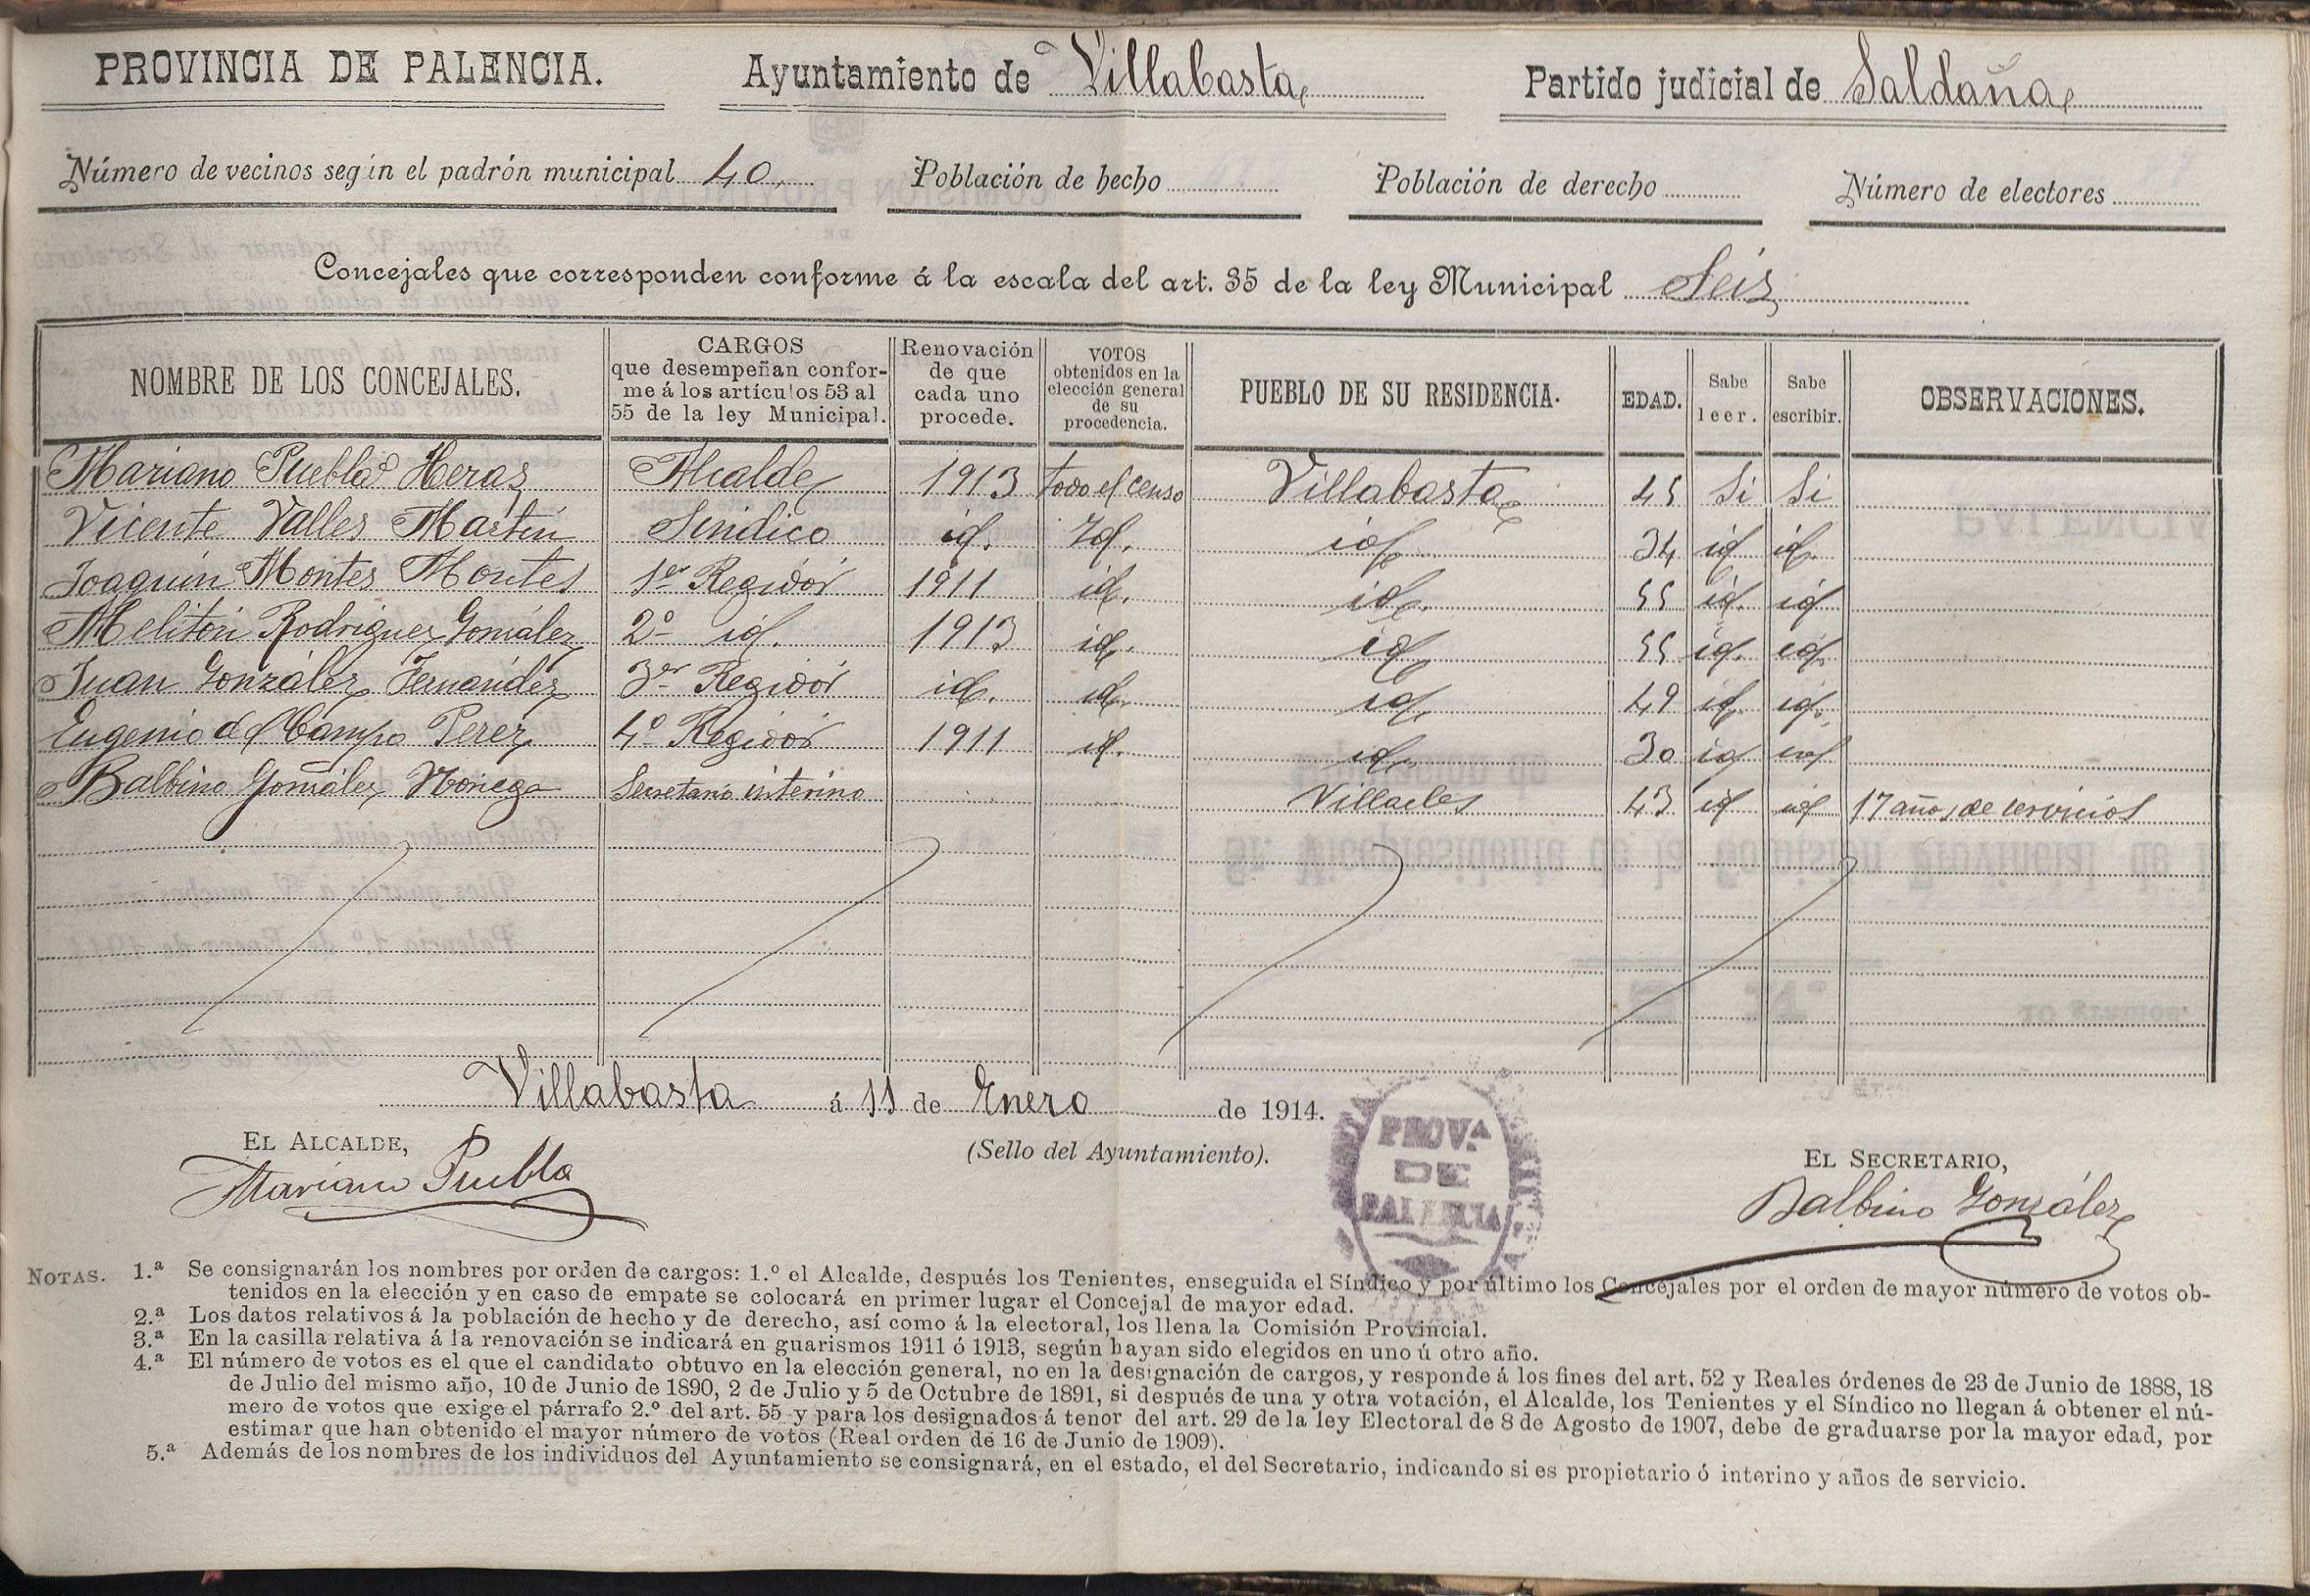 PROVINCIA DE PALENCIA. Ayuntamiento de Villabasta Partido judicial de Saldaña
Número de vecinos según el padrón municipal 40. Población de hecho Población de derecho Número de electores
Concejales que corresponden conforme á la escala del art. 35 de la ley Municipal Seis
NOMBRE DE LOS CONCEJALES. CARGOS que desempeñan conforme á los artículos 53 al 55 de la ley Municipal. Renovación de que cada uno procede. VOTOS obtenidos en la elección general de su procedencia. PUEBLO DE SU RESIDENCIA. EDAD. Sabe leer. Sabe escribir. OBSERVACIONES.
Mariano Puebla Heras Alcalde 1913 todo el censo Villabasta 45 Si Si
Vicente Valles Martin Sindico id. Id. id. 34 id id.
Joaquin Montes Montes 1er Regidor 1911 id. id. 55 id. id
Meliton Rodriguez González 2º id. 1913 id. id 55 id. id.
Juan González Fernández 3er Regidor id. id. id. 49 id. id.
Eugenio del Campo Perez 4º Regidor 1911 id. id. 30 id id
Balbino González Noriega Secretario interino Villaeles 43 id id 17 años de servicios
Villabasta á 11 de Enero de 1914.
EL ALCALDE,
Mariano Puebla
(Sello del Ayuntamiento).
PROV.A
DE
PALENCIA
EL SECRETARIO,
Balbino González
NOTAS. 1.ª Se consignarán los nombres por orden de cargos: 1.º el Alcalde, después los Tenientes, enseguida el Síndico y por último los Concejales por el orden de mayor número de votos ob-
tenidos en la elección y en caso de empate se colocará en primer lugar el Concejal de mayor edad.
2.ª Los datos relativos á la población de hecho y de derecho, así como á la electoral, los llena la Comisión Provincial.
3.ª En la casilla relativa á la renovación se indicará en guarismos 1911 ó 1913, según hayan sido elegidos en uno ú otro año.
4.ª El número de votos es el que el candidato obtuvo en la elección general, no en la designación de cargos, y responde á los fines del art. 52 y Reales órdenes de 23 de Junio de 1888, 18
de Julio del mismo año, 10 de Junio de 1890, 2 de Julio y 5 de Octubre de 1891, si después de una y otra votación, el Alcalde, los Tenientes y el Síndico no llegan á obtener el nú-
mero de votos que exige el párrafo 2.º del art. 55 y para los designados á tenor del art. 29 de la ley Electoral de 8 de Agosto de 1907, debe de graduarse por la mayor edad, por
estimar que han obtenido el mayor número de votos (Real orden de 16 de Junio de 1909).
5.ª Además de los nombres de los individuos del Ayuntamiento se consignará, en el estado, el del Secretario, indicando si es propietario ó interino y años de servicio.